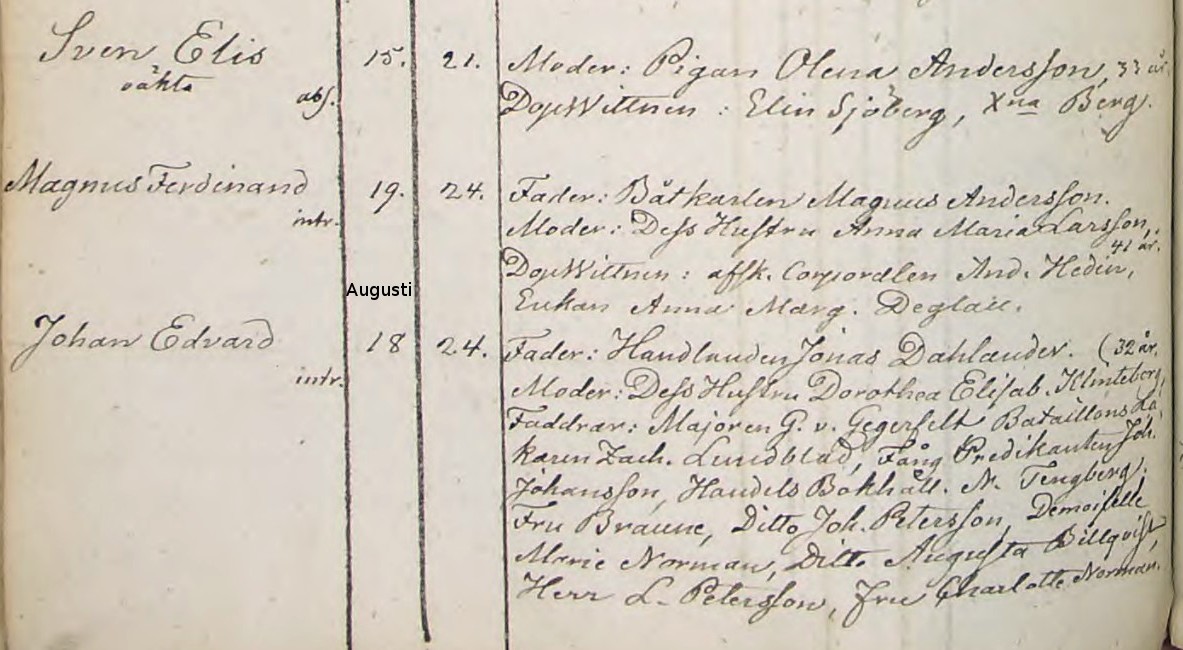 Sven Elis 15. 21. Moder: Pigan Olena Andersson, 33 år.
oäkta
abs. DopWittnen: Elin Sjöberg, Xna Berg.
Magnus Ferdinand 19. 24. Fader: Båtkarlen Magnus Andersson.
intr. Moder: Dess Hustru Anna Maria Larsson,
41 år.
DopWittnen: affk. Corporalen And. Hedin,
Augusti
Enkan Anna Marg.
Johan Edvard 18 24. Fader: Handlanden Jonas Dahlander. (32 år.
intr. Moder: Dess Hustru Dorothea Elisab. Klinteberg,
Faddrar: Majoren G. v. Gegerfelt Bataillons Lä
karen Zach. Lundblad, Fång Predikanten Joh.
Johansson, Handels Bokhåll. N. Tengberg.
Fru Braune, Ditto Joh. Petersson, Demoiselle
Marie Norman, Ditto Augusta Billqvist,
Herr L. Petersson, Fru Charlotte Norman.